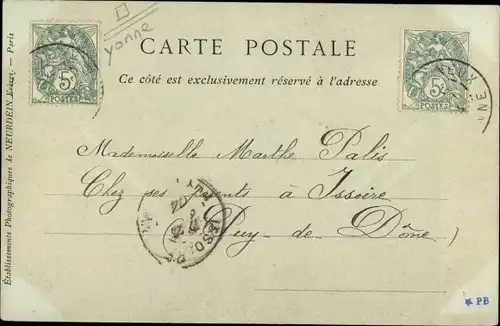 yonne
CARTE POSTALE
Ce côté est exclusivement réservé à l'adresse
5c
POSTES
5c
POSTES
Mademoiselle Marthe Palis
Chez ses parents à Issoire
Puy-de-Dôme)
Établissements Photographiques de NEURDEIN Frères. — Paris
PB